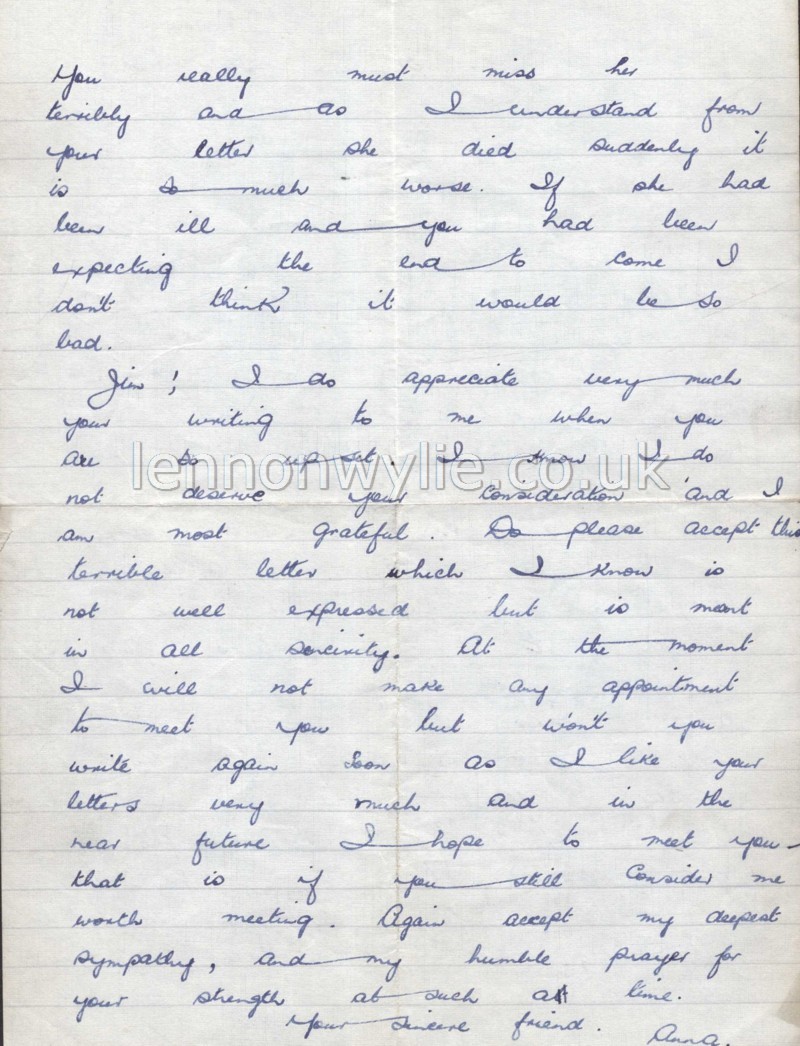 You really must miss her
terribly and as I understand from
your letter she died suddenly it
is so much worse. If she had
been ill and you had been
expecting the end to come I
don't think it would be so
bad.
Jim! I do appreciate very much
your writing to me when you
are so upset. I know I do
not deserve your consideration and I
am most grateful. Do please accept this
terrible letter which I know is
not well expressed but is meant
in all sincirity. At the moment
I will not make any appointment
to meet you but won't you
write again soon as I like your
letters very much and in the
near future I hope to meet you -
that is if you still Consider me
worth meeting. Again accept my deepest
sympathy, and my humble prayer for
your strength at such a time.
Your sincere friend.
Anna.
lennonwylie.co.uk